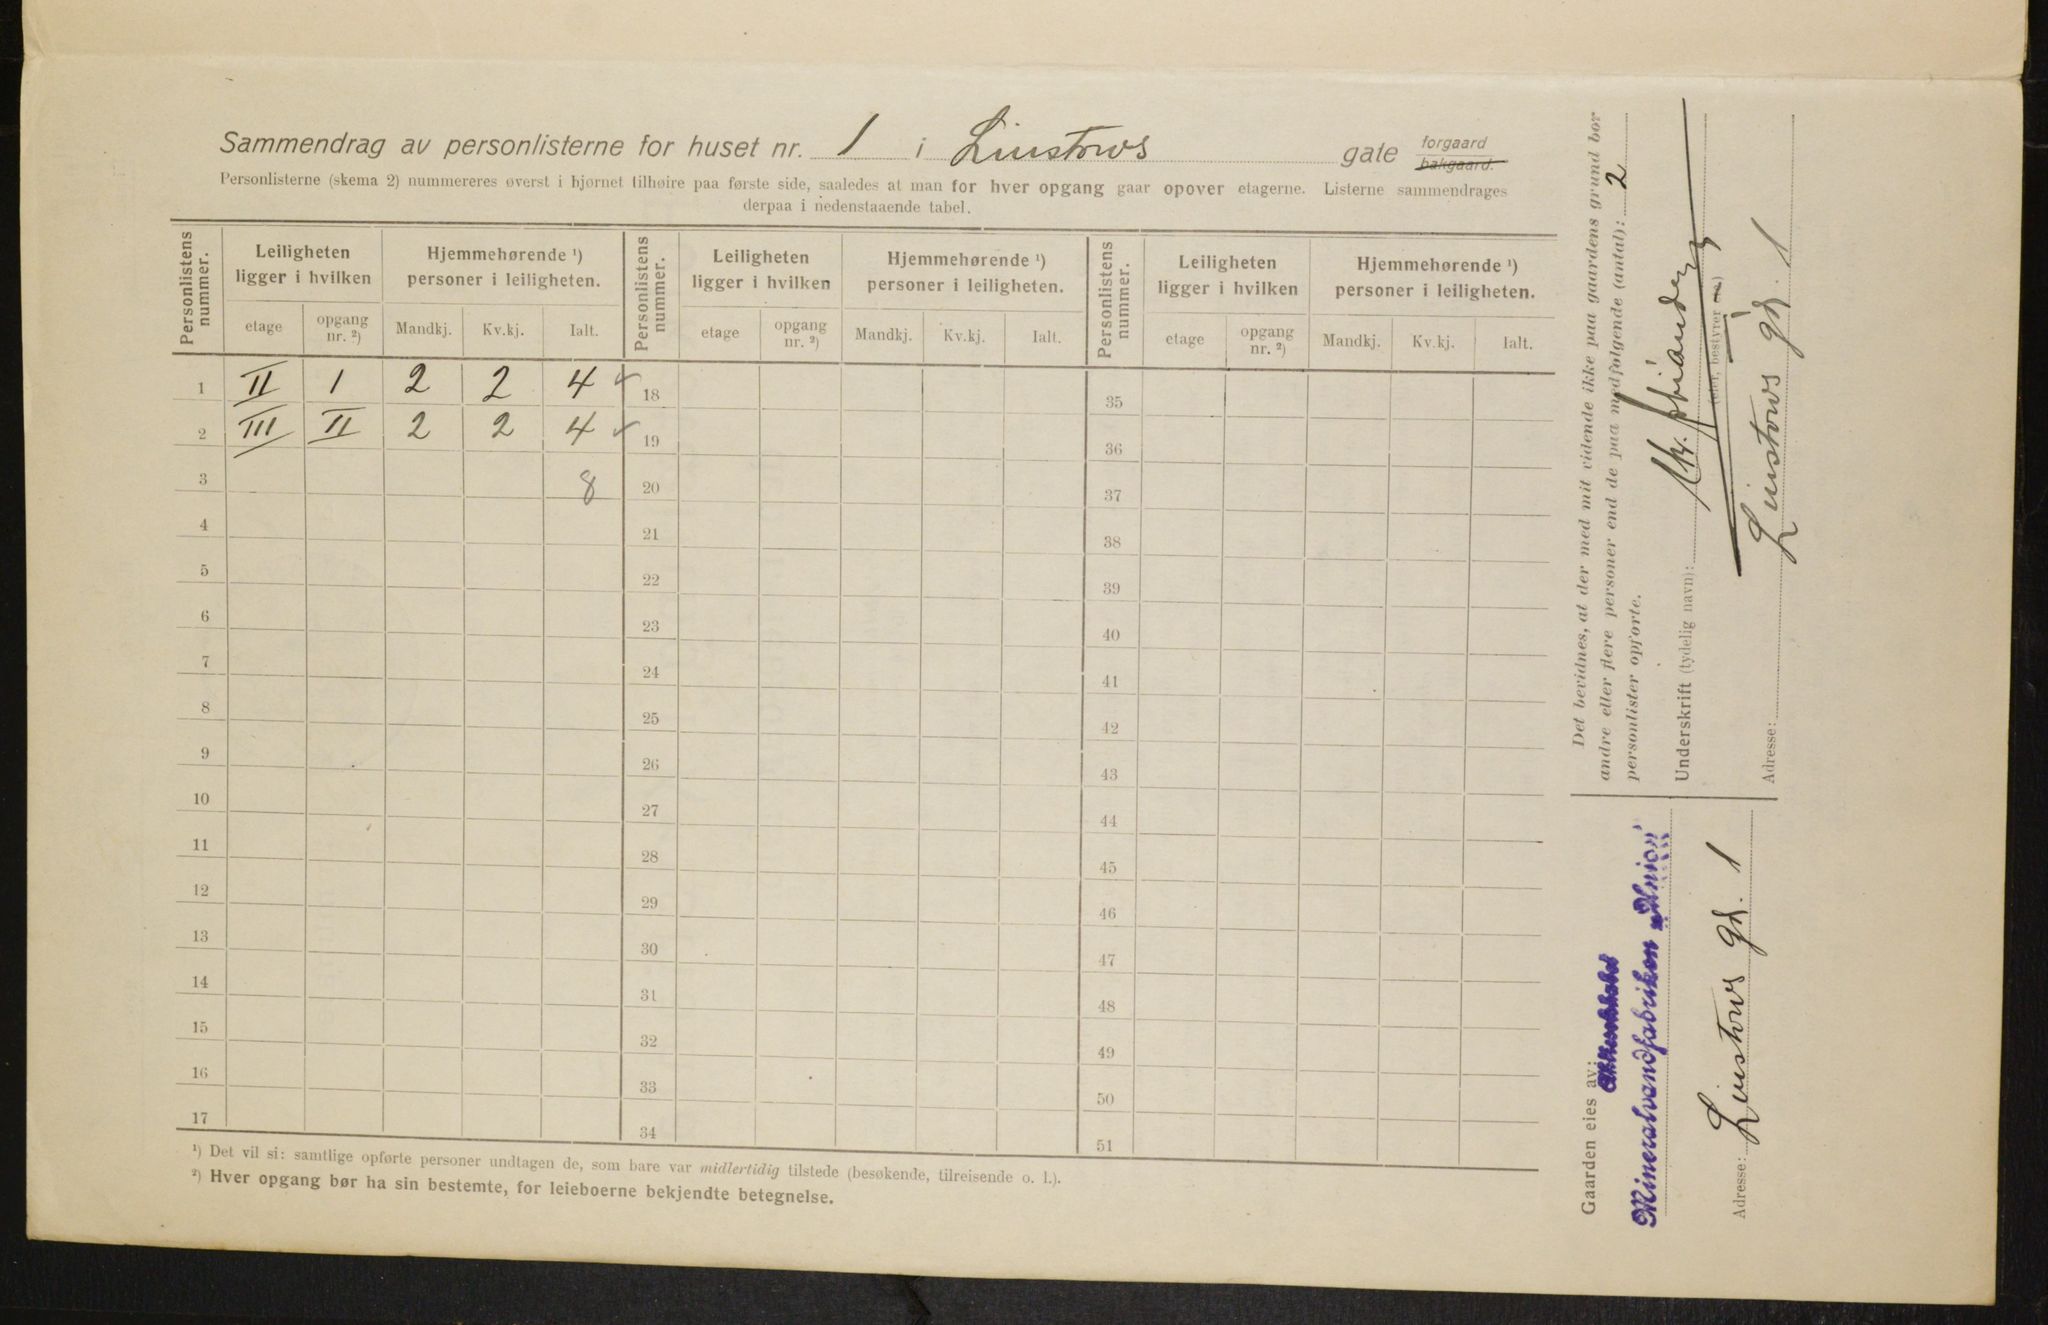 Sammendrag av personlisterne for huset nr. 1 i Linstows gate forgaard bakgaard.
Personlisterne (skema 2) nummereres øverst i hjørnet tilhøire paa første side, saaledes at man for hver opgang gaar opover etagerne. Listerne sammendrages
derpaa i nedenstaaende tabel.
Personlistens nummer. Leiligheten ligger i hvilken Hjemmehørende ¹) personer i leiligheten. Personlistens nummer. Leiligheten ligger i hvilken Hjemmehørende ¹) personer i leiligheten. Personlistens nummer. Leiligheten ligger i hvilken Hjemmehørende ¹) personer i leiligheten.
etage opgang nr. ²) Mandkj. Kv.kj. Ialt. etage opgang nr. ²) Mandkj. Kv.kj. Ialt. etage opgang nr. ²) Mandkj. Kv.kj. Ialt.
1 II 1 2 2 4 ✓ 18 35
2 III II 2 2 4 ✓ 19 36
3 8 20 37
4 21 38
5 22 39
6 23 40
7 24 41
8 25 42
9 26 43
10 27 44
11 28 45
12 29 46
13 30 47
14 31 48
15 32 49
16 33 50
17 34 51
¹) Det vil si: samtlige opførte personer undtagen de, som bare var midlertidig tilstede (besøkende, tilreisende o. l.).
²) Hver opgang bør ha sin bestemte, for leieboerne bekjendte betegnelse.
Det bevidnes, at der med mit vidende ikke paa gaardens grund bor
andre eller flere personer end de paa medfølgende (antal): 2
personlister opførte.
Underskrift (tydelig navn):
(eier, bestyrer etc.)
Adresse: Linstows gt. 1
Gaarden eies av: Aktieselskabet
Mineralvandfabriken „Union"
Adresse: Linstows gt. 1